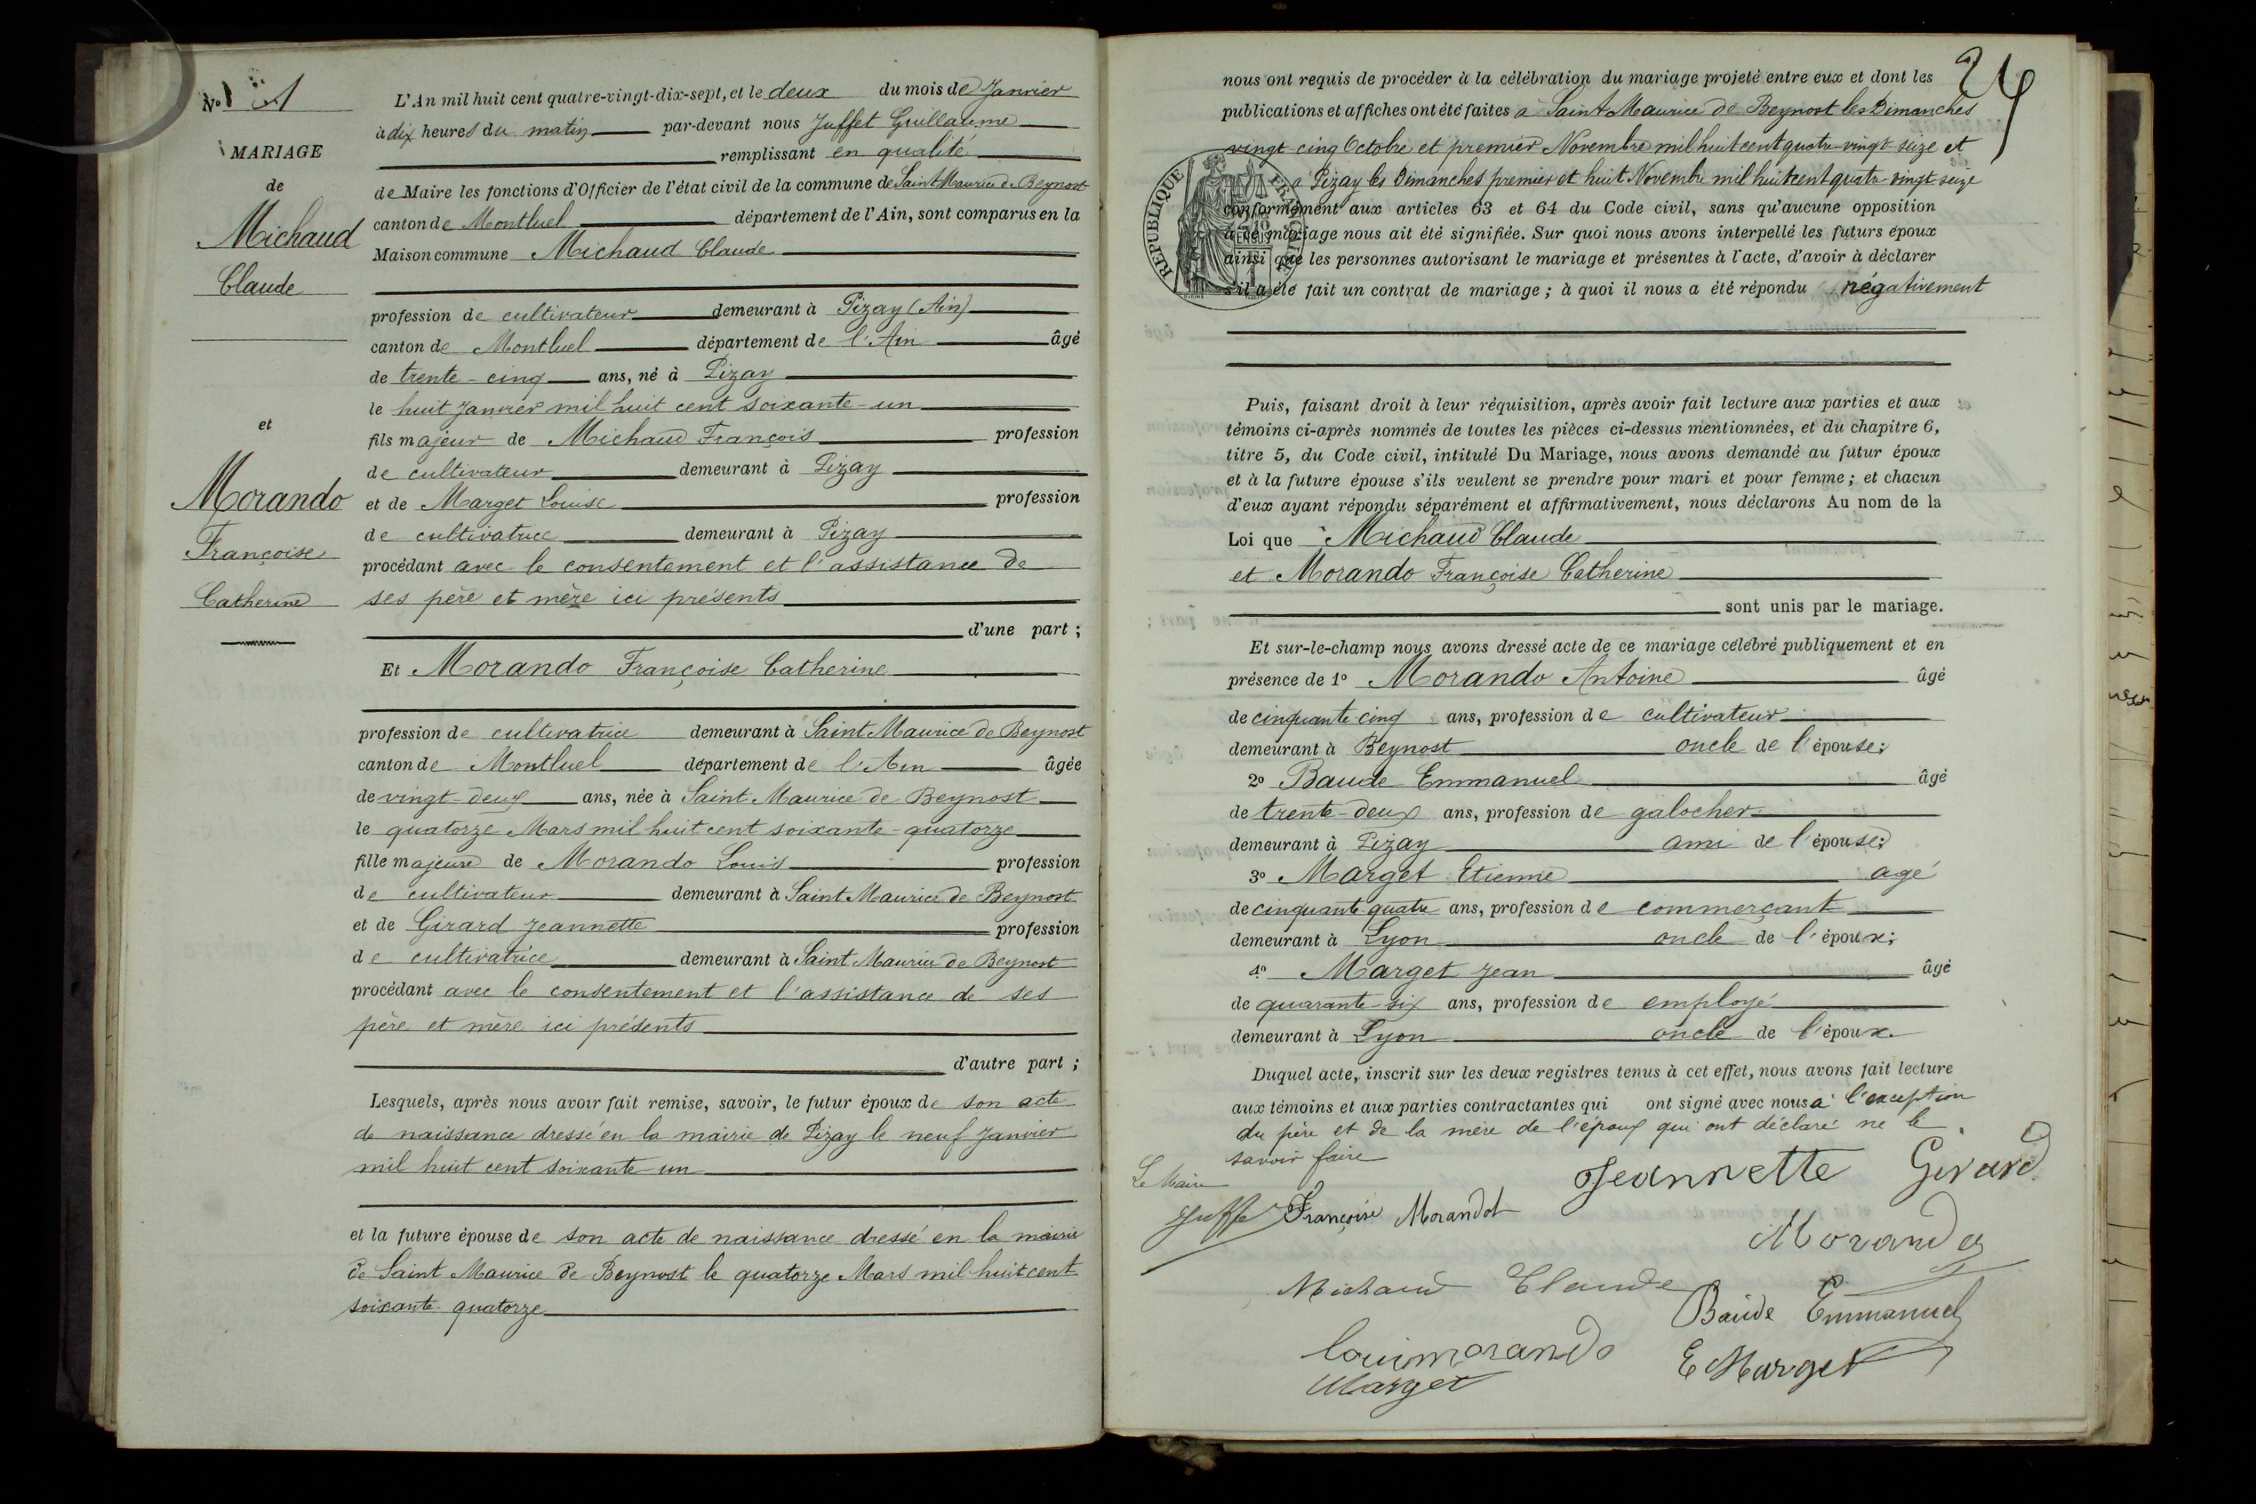 No 1
MARIAGE
de
Michaud
Claude
et
Morando
Françoise
Catherine
L'An mil huit cent quatre-vingt-dix-sept, et le deux du mois de Janvier
à dix heures du matin par-devant nous Juffet Guillaume
remplissant en qualité
de Maire les fonctions d'Officier de l'état civil de la commune de Saint Maurice de Beynost
canton de Montluel département de l'Ain, sont comparus en la
Maison commune Michaud Claude
profession de cultivateur demeurant à Pizay (Ain)
canton de Montluel département de l'Ain âgé
de trente-cinq ans, né à Pizay
le huit Janvier mil huit cent soixante-un
fils majeur de Michaud François profession
de cultivateur demeurant à Pizay
et de Marget Louise profession
de cultivatrice demeurant à Pizay
procédant avec le consentement et l'assistance de
ses père et mère ici présents
d'une part ;
Et Morando Françoise Catherine
profession de cultivatrice demeurant à Saint Maurice de Beynost
canton de Montluel département de l'Ain âgée
de vingt-deux ans, née à Saint Maurice de Beynost
le quatorze Mars mil huit cent soixante-quatorze
fille majeure de Morando Louis profession
de cultivateur demeurant à Saint Maurice de Beynost
et de Girard Jeannette profession
de cultivatrice demeurant à Saint Maurice de Beynost
procédant avec le consentement et l'assistance de ses
père et mère ici présents
d'autre part ;
Lesquels, après nous avoir fait remise, savoir, le futur époux de son acte
de naissance dressé en la mairie de Pizay le neuf Janvier
mil huit cent soixante-un
et la future épouse de son acte de naissance dressé en la mairie
de Saint Maurice de Beynost le quatorze Mars mil huit cent
soixante-quatorze
24
nous ont requis de procéder à la célébration du mariage projeté entre eux et dont les
publications et affiches ont été faites à Saint Maurice de Beynost les Dimanches
vingt cinq Octobre et premier Novembre mil huit cent quatre-vingt seize et
à Pizay les Dimanches premier et huit Novembre mil huit cent quatre-vingt seize
conformément aux articles 63 et 64 du Code civil, sans qu'aucune opposition
à ce mariage nous ait été signifiée. Sur quoi nous avons interpellé les futurs époux
ainsi que les personnes autorisant le mariage et présentes à l'acte, d'avoir à déclarer
s'il a été fait un contrat de mariage ; à quoi il nous a été répondu négativement
RÉPUBLIQUE FRANÇAISE
Puis, faisant droit à leur réquisition, après avoir fait lecture aux parties et aux
témoins ci-après nommés de toutes les pièces ci-dessus mentionnées, et du chapitre 6,
titre 5, du Code civil, intitulé Du Mariage, nous avons demandé au futur époux
et à la future épouse s'ils veulent se prendre pour mari et pour femme ; et chacun
d'eux ayant répondu séparément et affirmativement, nous déclarons Au nom de la
Loi que Michaud Claude
et Morando Françoise Catherine
sont unis par le mariage.
Et sur-le-champ nous avons dressé acte de ce mariage célébré publiquement et en
présence de 1o Morando Antoine âgé
de cinquante-cinq ans, profession de cultivateur
demeurant à Beynost oncle de l'épouse;
2o Baude Emmanuel âgé
de trente-deux ans, profession de galocher
demeurant à Pizay ami de l'épouse;
3o Marget Etienne agé
de cinquante-quatre ans, profession de commerçant
demeurant à Lyon oncle de l'époux;
4o Marget Jean âgé
de quarante-six ans, profession de employé
demeurant à Lyon oncle de l'époux.
Duquel acte, inscrit sur les deux registres tenus à cet effet, nous avons fait lecture
aux témoins et aux parties contractantes qui ont signé avec nous à l'exception
du père et de la mère de l'époux qui ont déclaré ne le
savoir faire
Le Maire
Jeannette Girard
Juffet Françoise Morandot
Morando
Michaud Claude
Baude Emmanuel
Louis morando
E Marget
Marget